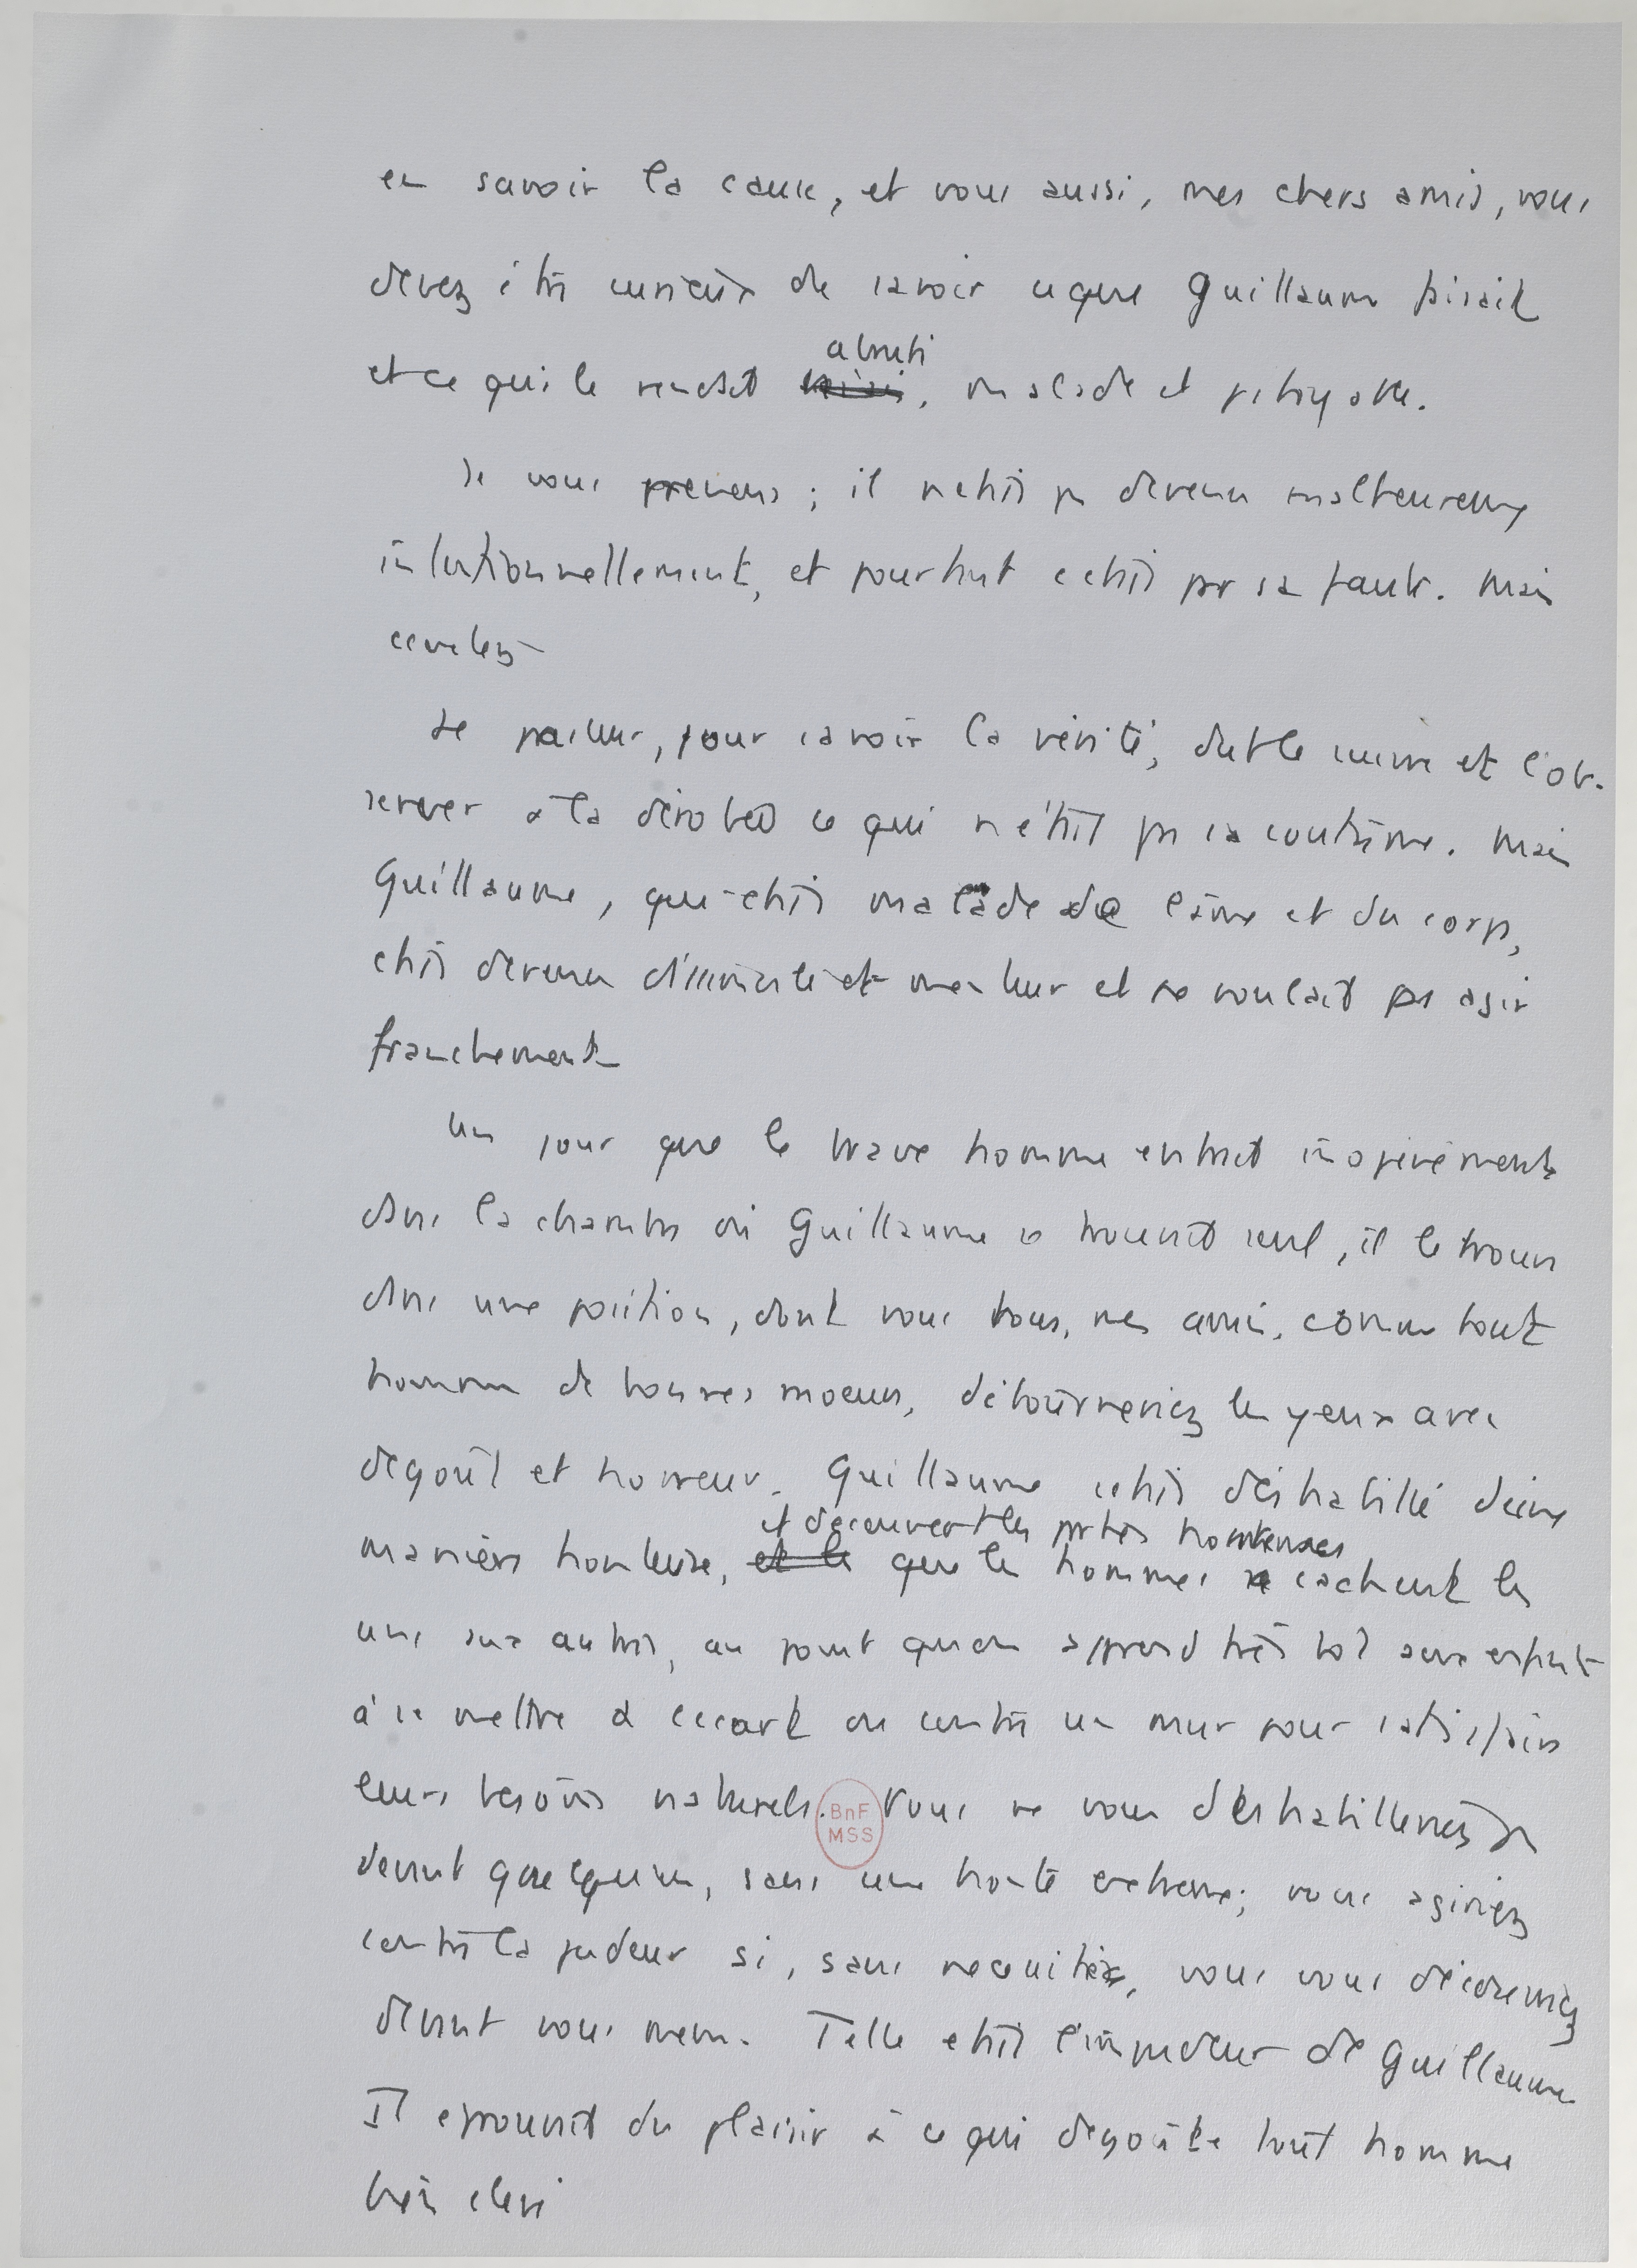 en savoir la cause, et vous aussi, mes chers amis, vous
devez être curieux de savoir ce que Guillaume faisait
abruti
et ce qui le rendait , malade et pitoyable.
Je vous previens ; il n'etait pas devenu malheureux
intentionnellement, et pourtant c'etait par sa faute. Mais
ecoutez
Le pasteur, pour savoir la vérité, dut le suivre et l'ob-
server à la dérobée ce qui n'était pas sa coutume. Mais
Guillaume, qui etait malade de l'âme et du corps,
etait devenu dissimulé et menteur et ne voulait pas agir
franchement
Un jour que le brave homme entrait inopinément
dans la chambre où Guillaume se trouvait seul, il le trouva
dans une position, dont vous tous, mes amis, comme tout
homme de bonnes moeurs, détourneriez les yeux avec
degoût et horreur. Guillaume s'etait déshabillé d'une
et decouvert les parties honteuses
manière honteuse, et le que les hommes se cachent les
uns aux autres, au point qu'on apprend très tôt aux enfants
à se mettre à l'ecart ou contre un mur pour satisfaire
leurs besoins naturels. Vous ne vous déshabilleriez pas
devant quelqu'un, sans une honte extreme; vous agiriez
contre la pudeur si, sans necessité, vous vous découvriez
devant vous meme. Telle etait l'impudeur de Guillaume
Il eprouvait du plaisir à ce qui degoûte tout homme
bien elevé
BnF
MSS